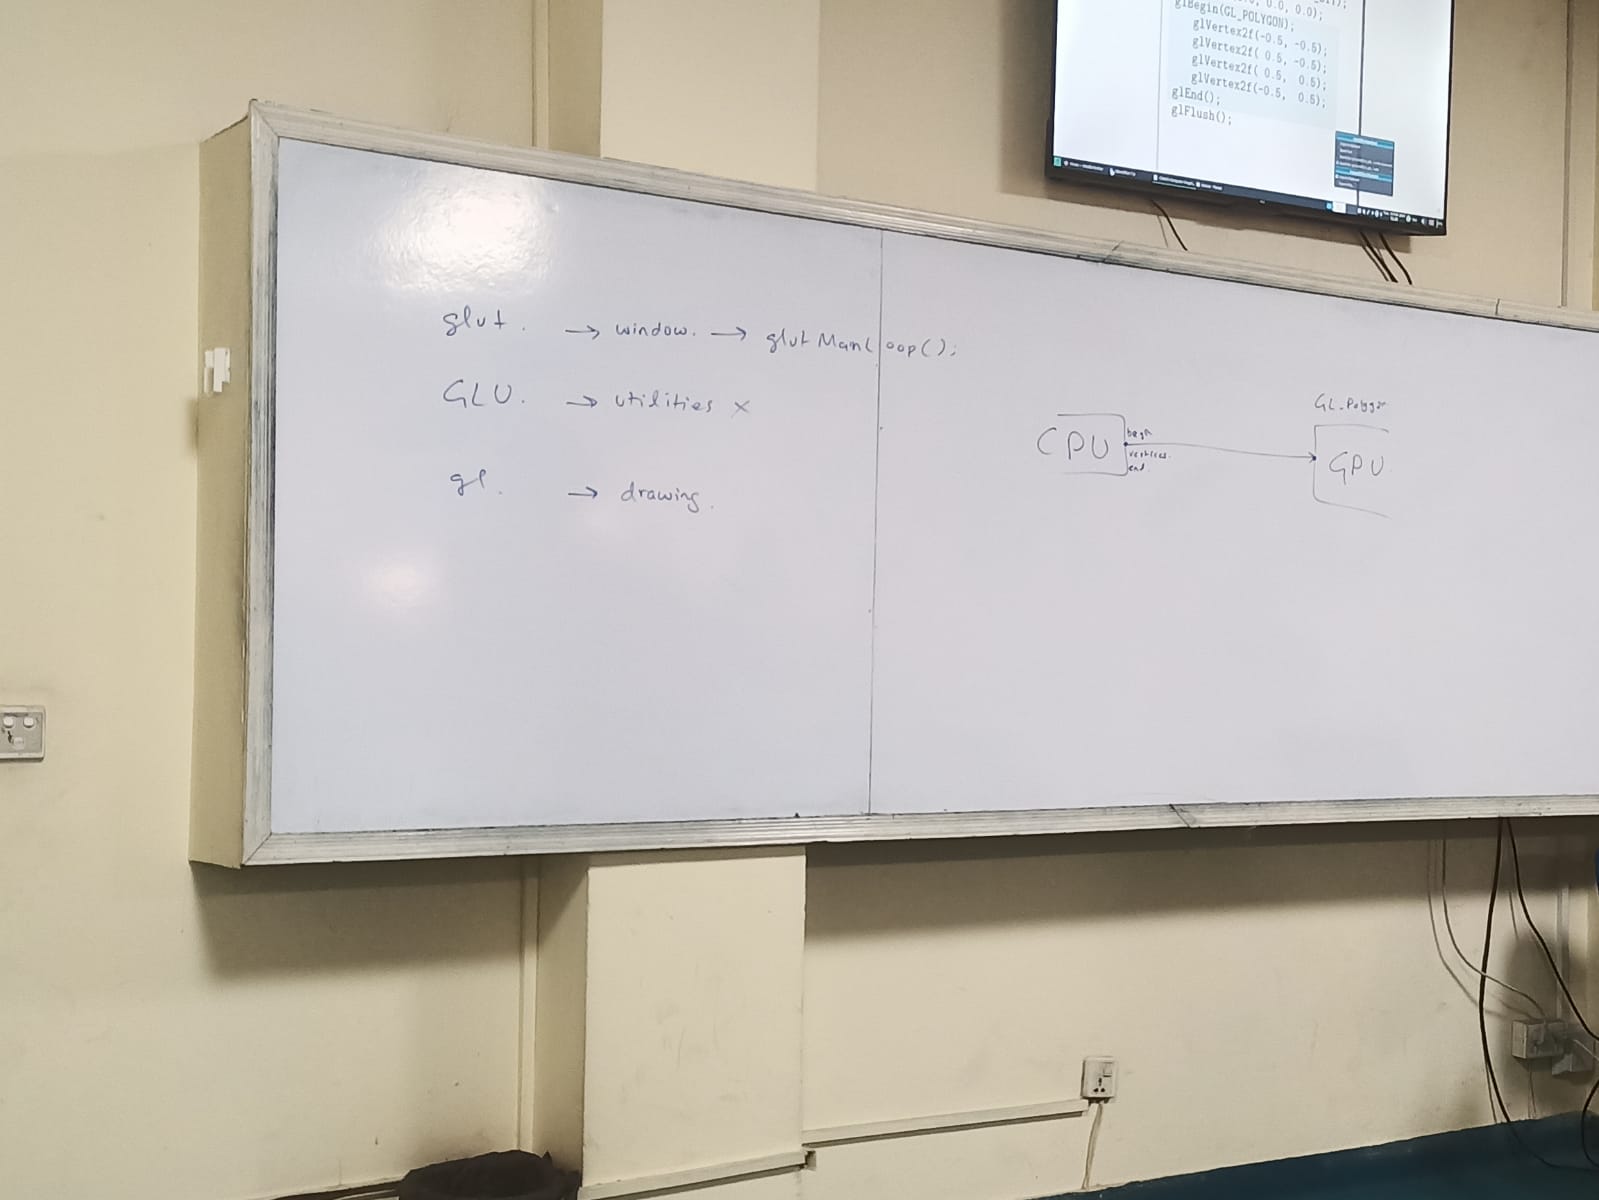 0.0, 0.0);
glBegin(GL_POLYGON);
glVertex2f(-0.5, -0.5);
glVertex2f( 0.5, -0.5);
glVertex2f( 0.5, 0.5);
glVertex2f(-0.5, 0.5);
glEnd();
glFlush();
glut. → window. → glutMainLoop();
GLU. → utilities ×
gl. → drawing.
GL_Polygon
CPU
begin
vertices.
end.
GPU